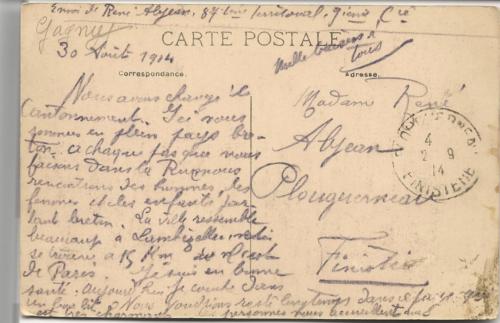 Envoi de René Abjean, 87ème territorial, 9ième Cie
Gagny
30 Août 1914
CARTE POSTALE
Mille baisers à
tous
Correspondance.
Adresse.
Nous avons changé de
Cantonnement. Ici nous
sommes en plein pays bre-
ton, a chaque pas que nous
faisons dans la Rue nous
rencontrons des hommes, des
femmes et des enfants par
lant breton. La ville ressemble
beaucoup à Lambézellec mais
se trouve à 15 Km de
de Paris. Je suis en bonne
santé. Aujourd'hui je couche dans
un bon lit. Nous voudrions rester longtemps dans ce pays
personnes nous accueillent
Madame René
Abjean
Plouguerneau
Finistère
PLOUGUERNEAU
4
2 9
14
FINISTERE